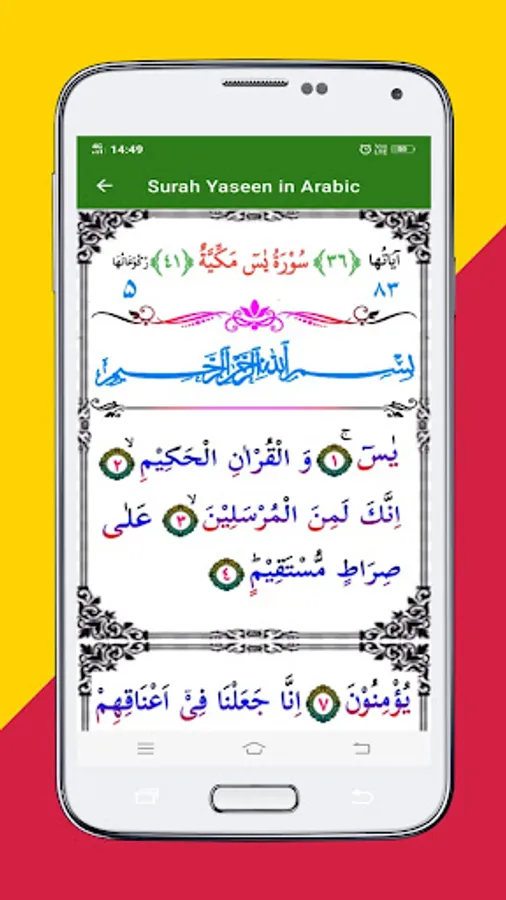 14:49
Surah Yaseen in Arabic
آيَاتُهَا ﴿٣٦﴾ سُوْرَةُ يٰسٓ مَكِّيَّةٌ ﴿٤١﴾ رُكُوْعَاتُهَا
٨٣ ۵
بِسْمِ اللهِ الرَّحْمٰنِ الرَّحِيْمِ
يٰسٓ ۚ ١ وَ الْقُرْاٰنِ الْحَكِيْمِ ۙ ٢
اِنَّكَ لَمِنَ الْمُرْسَلِيْنَ ۙ ٣ عَلٰى
صِرَاطٍ مُّسْتَقِيْمٍؕ ٤
يُؤْمِنُوْنَ ٧ اِنَّا جَعَلْنَا فِيْۤ اَعْنَاقِهِمْ